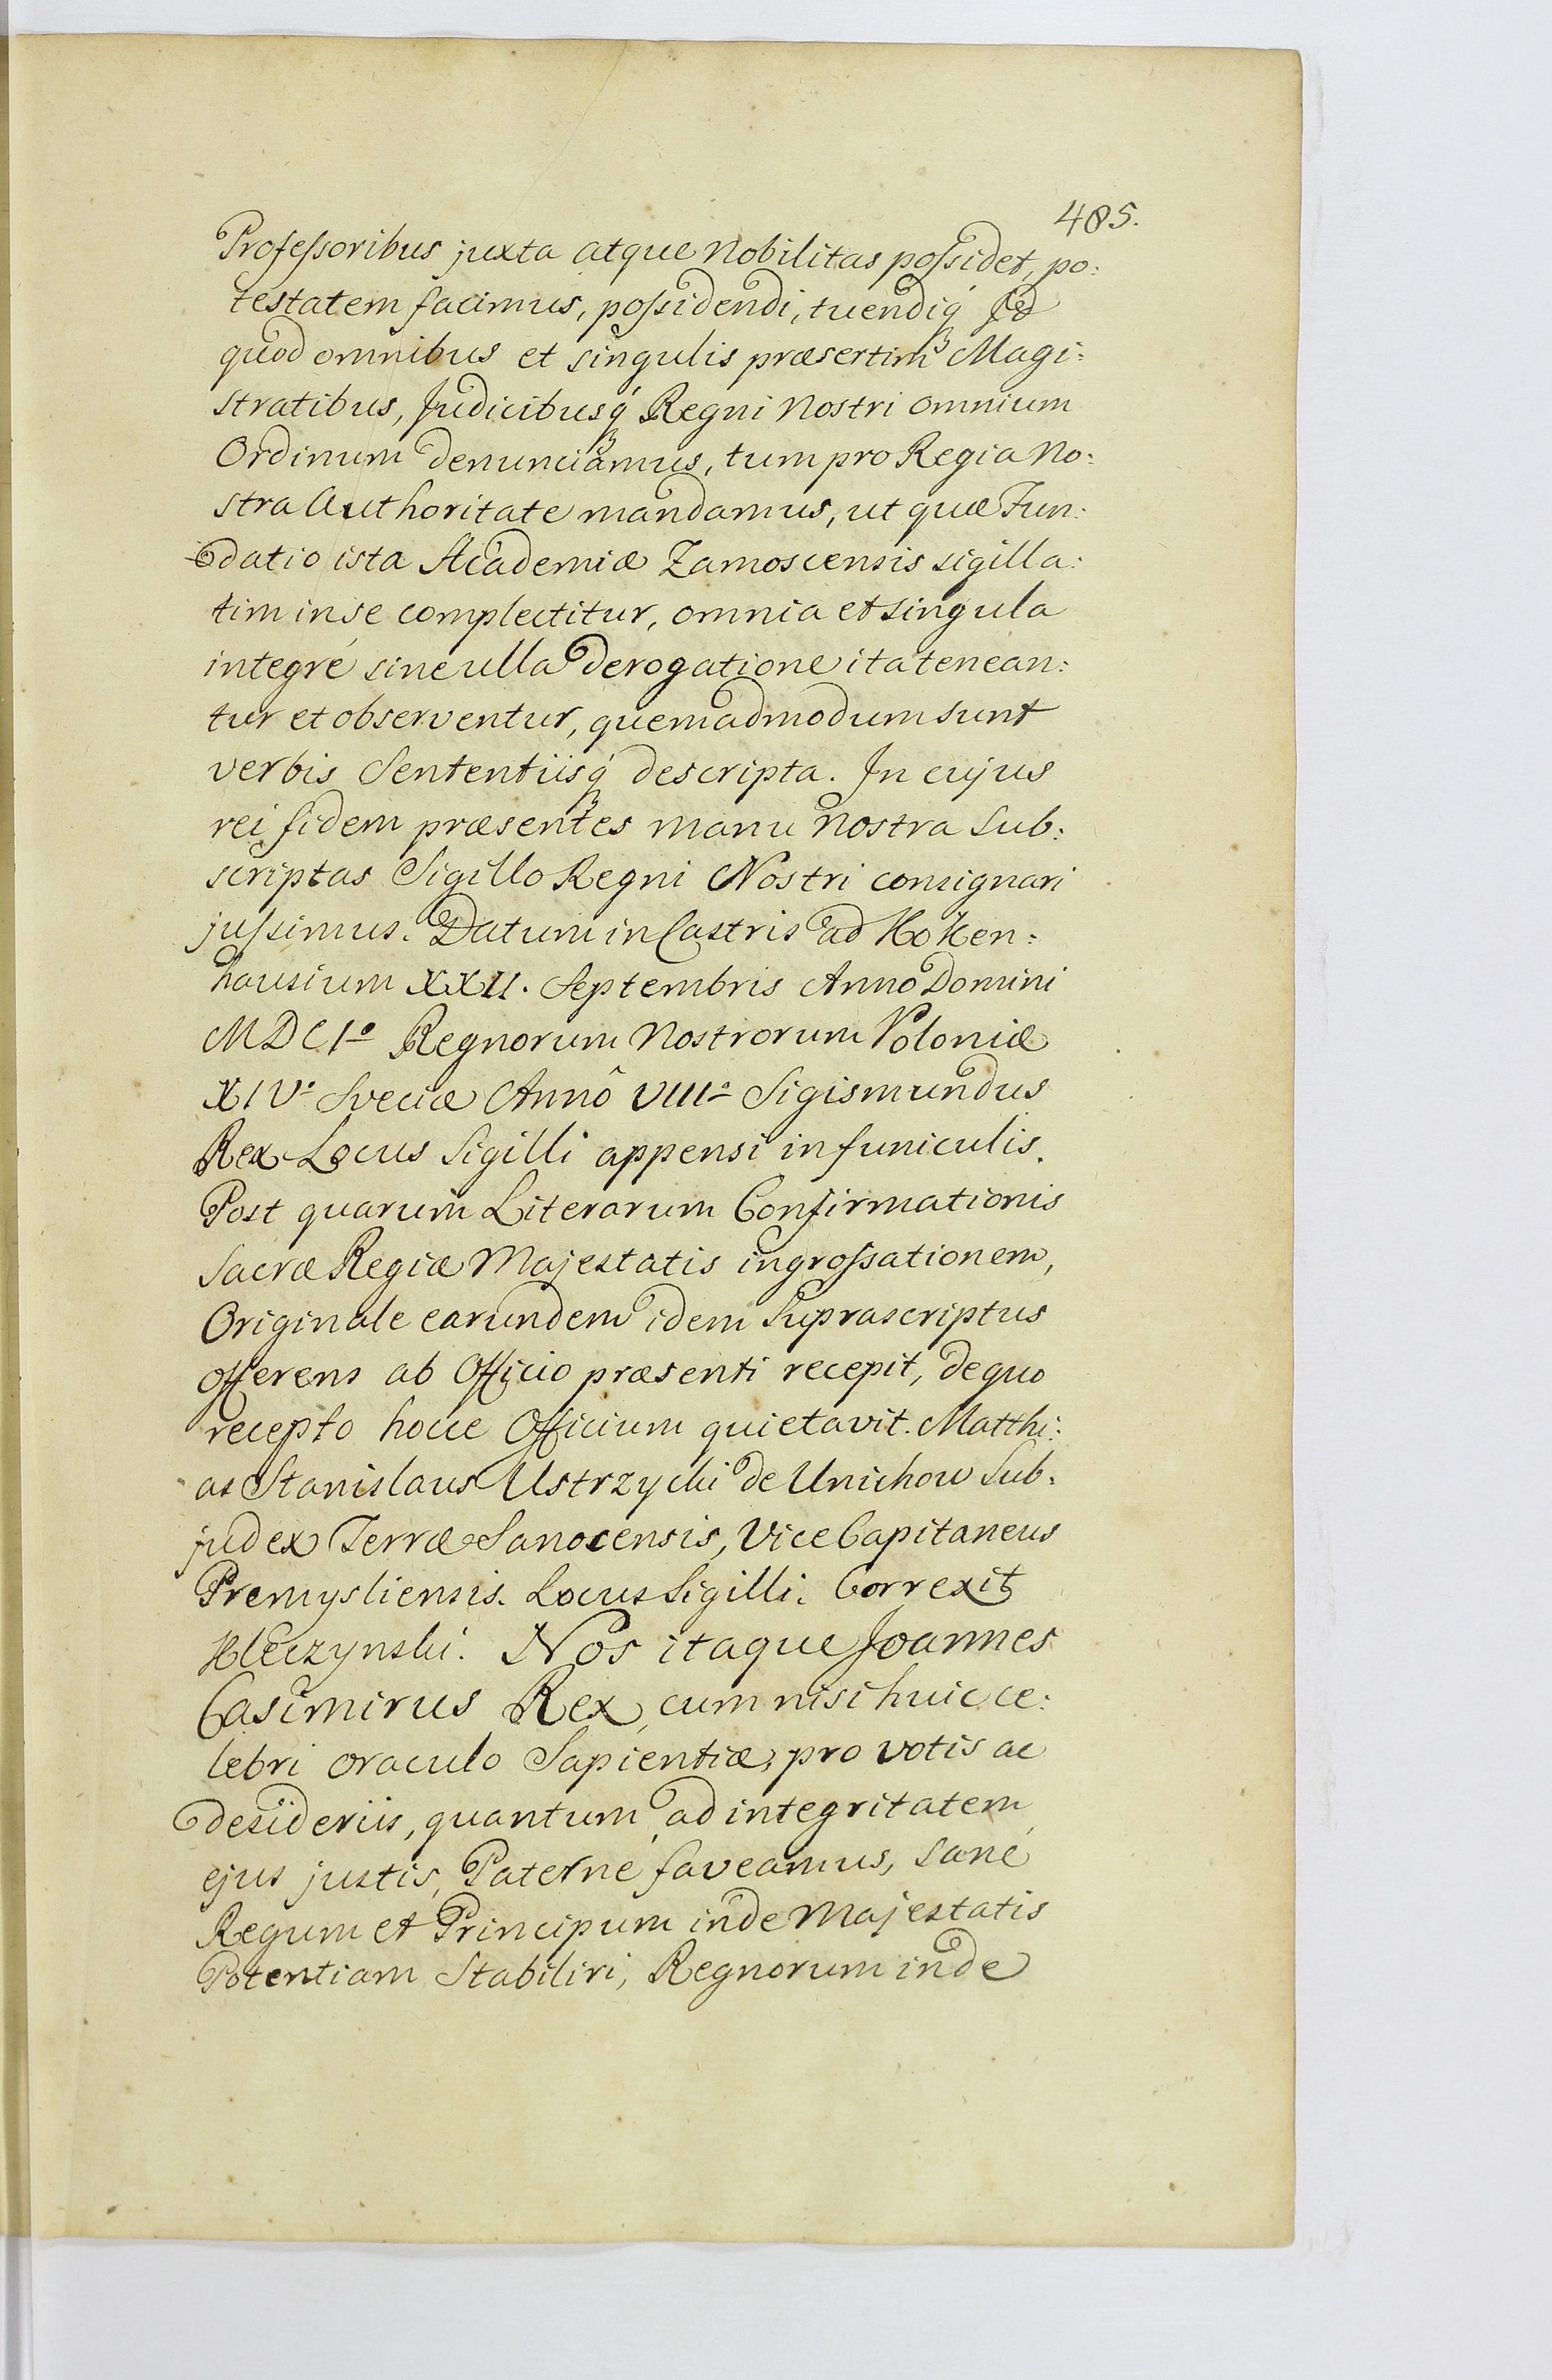 485.
Professoribus juxta atque Nobilitas possidet, po:
testatem facimus, possidendi, tuendiq́ꝫ Id
quod omnibus et singulis præsertim Magi:
stratibus, Judicibusq́ꝫ Regni Nostri omnium
Ordinum denunciamus, tum pro Regia No:
stra Authoritate mandamus, ut quæ Fun:
datio ista Academiæ Zamoscensis sigilla:
tim in se complectitur, omnia et singula
integré sine ulla derogatione ita tenean:
tur et observentur, quemadmodum sunt
verbis Sententiisq́ꝫ descripta. In cujus
rei fidem præsentes manu Nostra Sub:
scriptas Sigillo Regni Nostri consignari
jussimus. Datum in Castris ad Koken:
hausium XXII. Septembris Anno Domini
MDCIº Regnorum Nostrorum Poloniæ
XIVº Sveciæ Annô VIIIº Sigismundus
Rex Locus Sigilli appensi in funiculis.
Post quarum Literarum Confirmationis
Sacræ Regiæ Majestatis ingrossationem,
Originale earundem idem Suprascriptus
offerens ab Officio præsenti recepit, de quo
recepto hocce Officium quietavit. Matthi:
as Stanislaus Ustrzycki de Unichow Sub:
judex Terræ Sanocensis, Vice Capitaneus
Premysliensis. Locus Sigilli. Correxit
Kleczynski. Nos itaque Joannes
Casimirus Rex, cum nisi huic ce:
lebri oraculo Sapientiæ, pro votis ac
desideriis, quantum ad integritatem
ejus justis, Paterné faveamus, sané
Regum et Principum inde Majestatis
Potentiam Stabiliri, Regnorum inde